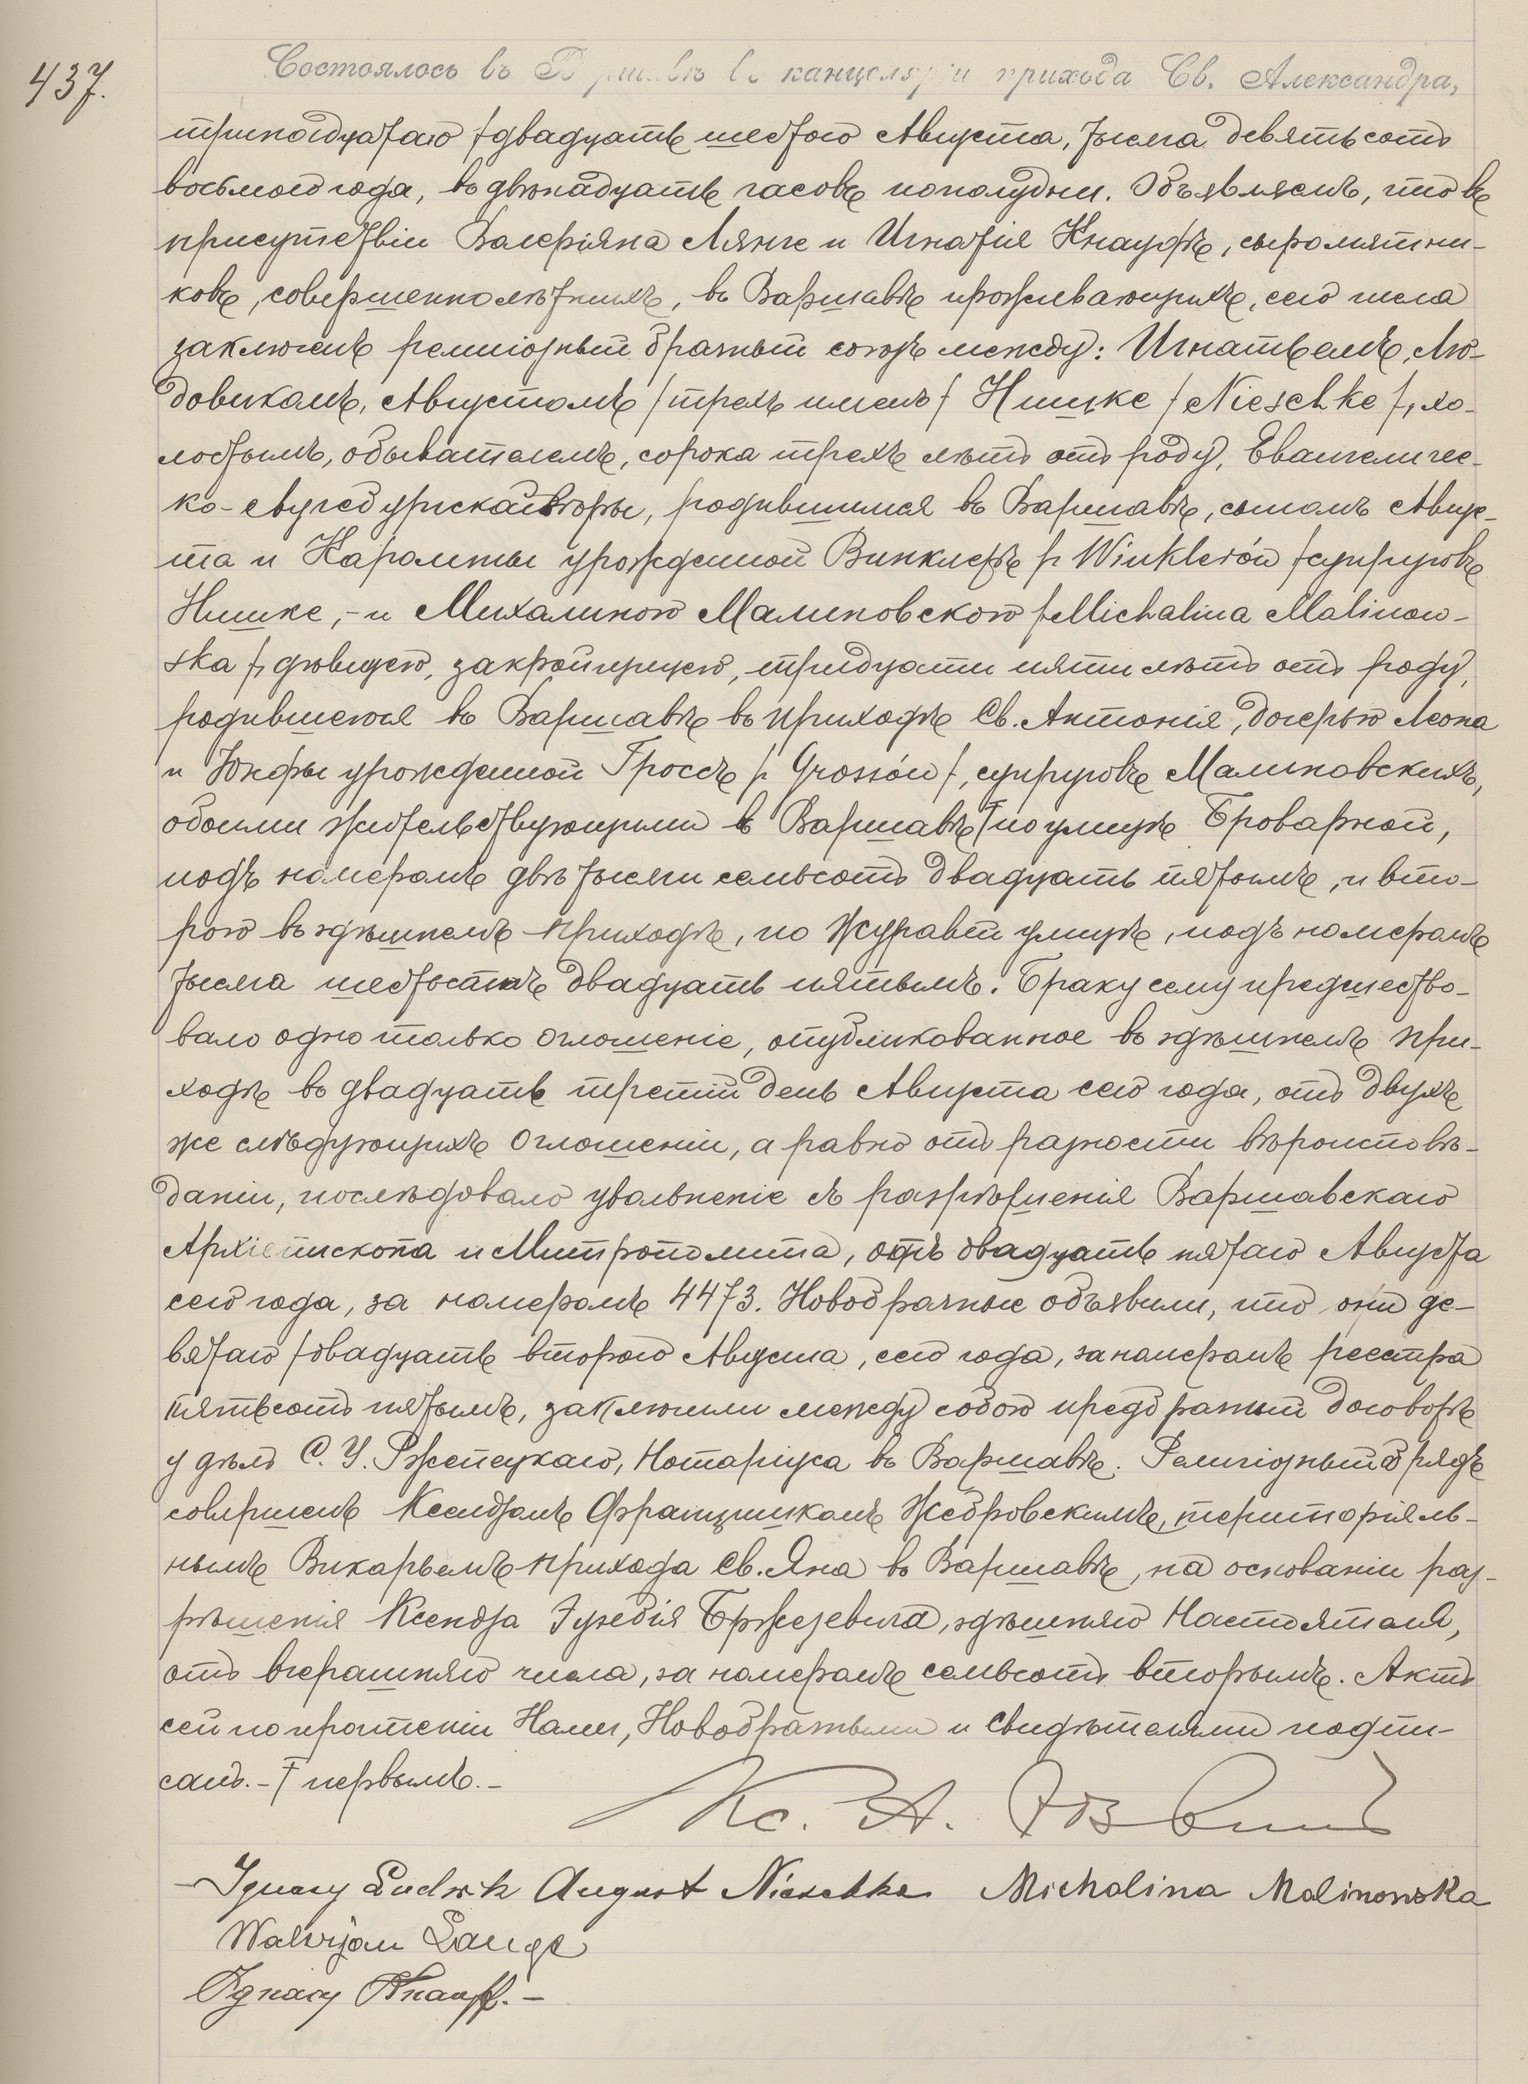 437.
Состоялось въ Варшавѣ въ канцеляріи прихода Св. Александра,
тринадцатаго /двадцать шестого Августа, тысяча девятьсотъ
восьмого года, въ двѣнадцать часовъ пополудни. Объявляемъ, что въ
присутствіи Валеріяна Лянге и Игнатія Кнауфъ, сыромятни-
ковъ, совершеннолѣтнихъ, въ Варшавѣ проживающихъ, сего числа
заключенъ религіозный брачный союзъ между: Игнатьемъ, Лю-
довикомъ, Августомъ /трехъ именъ/ Нишке /Nieschke/, хо-
лостымъ, обывателемъ, сорока трехъ лѣтъ отъ роду, Евангеличес-
ко-Аугсбургскаго вѣры, родившимся въ Варшавѣ, сыномъ Авгус-
та и Каролины урожденной Винклеръ /z Winklerów/ супруговъ
Нишке,- и Михалиною Малиновскою /Michalina Malinow-
ska/, дѣвицею, закройщицею, тридцати пяти лѣтъ отъ роду,
родившеюся въ Варшавѣ въ приходѣ Св. Антонія, дочерью Леона
и Юзефы урожденной Гроссъ /z Grossów/, супруговъ Малиновскихъ,
обоими жительствующими въ Варшавѣ Ŧ по улицѣ Броварной,
подъ номеромъ двѣ тысячи семьсотъ двадцать пятымъ, и вто-
рою въ здѣшнемъ приходѣ, по Журавей улицѣ, подъ номеромъ
тысяча шестьсотъ двадцать пятымъ. Браку сему предшество-
вало одно только оглошеніе, опубликованное въ здѣшнемъ при-
ходѣ въ двадцать третій день Августа сего года, отъ двухъ
же слѣдующихъ оглошеніи, а равно отъ разности вѣроисповѣ-
даніи, послѣдовало увольненіе съ разрѣшенія Варшавскаго
Архіепископа и Митрополита, отъ двадцать пятаго Августа
сего года, за номеромъ 4473. Новобрачные объявили, что они де-
вятаго /двадцать второго Августа, сего года, за номеромъ реестра
пятьсотъ пятымъ, заключили между собою предбрачный договоръ
у дѣлъ С. У. Ржепецкаго, Нотаріуса въ Варшавѣ. Религіозный обрядъ
совершенъ Ксендзомъ Францишкомъ Жебровскимъ, територіяль-
нымъ Викарьемъ прихода Св. Яна въ Варшавѣ, на основаніи раз-
рѣшенія Ксендза Эузебія Бржезевича, здѣшняго Настоятеля,
отъ вчерашняго числа, за номеромъ семьсотъ вторымъ. Актъ
сей по прочтеніи Нами, Новобрачными и свидѣтелями подпи-
санъ.- Ŧ первымъ.-
Кс. А.
Ignacy Ludwik August Nieschke Michalina Malinowska
Waleryan Lange
Ignacy Knauff.-